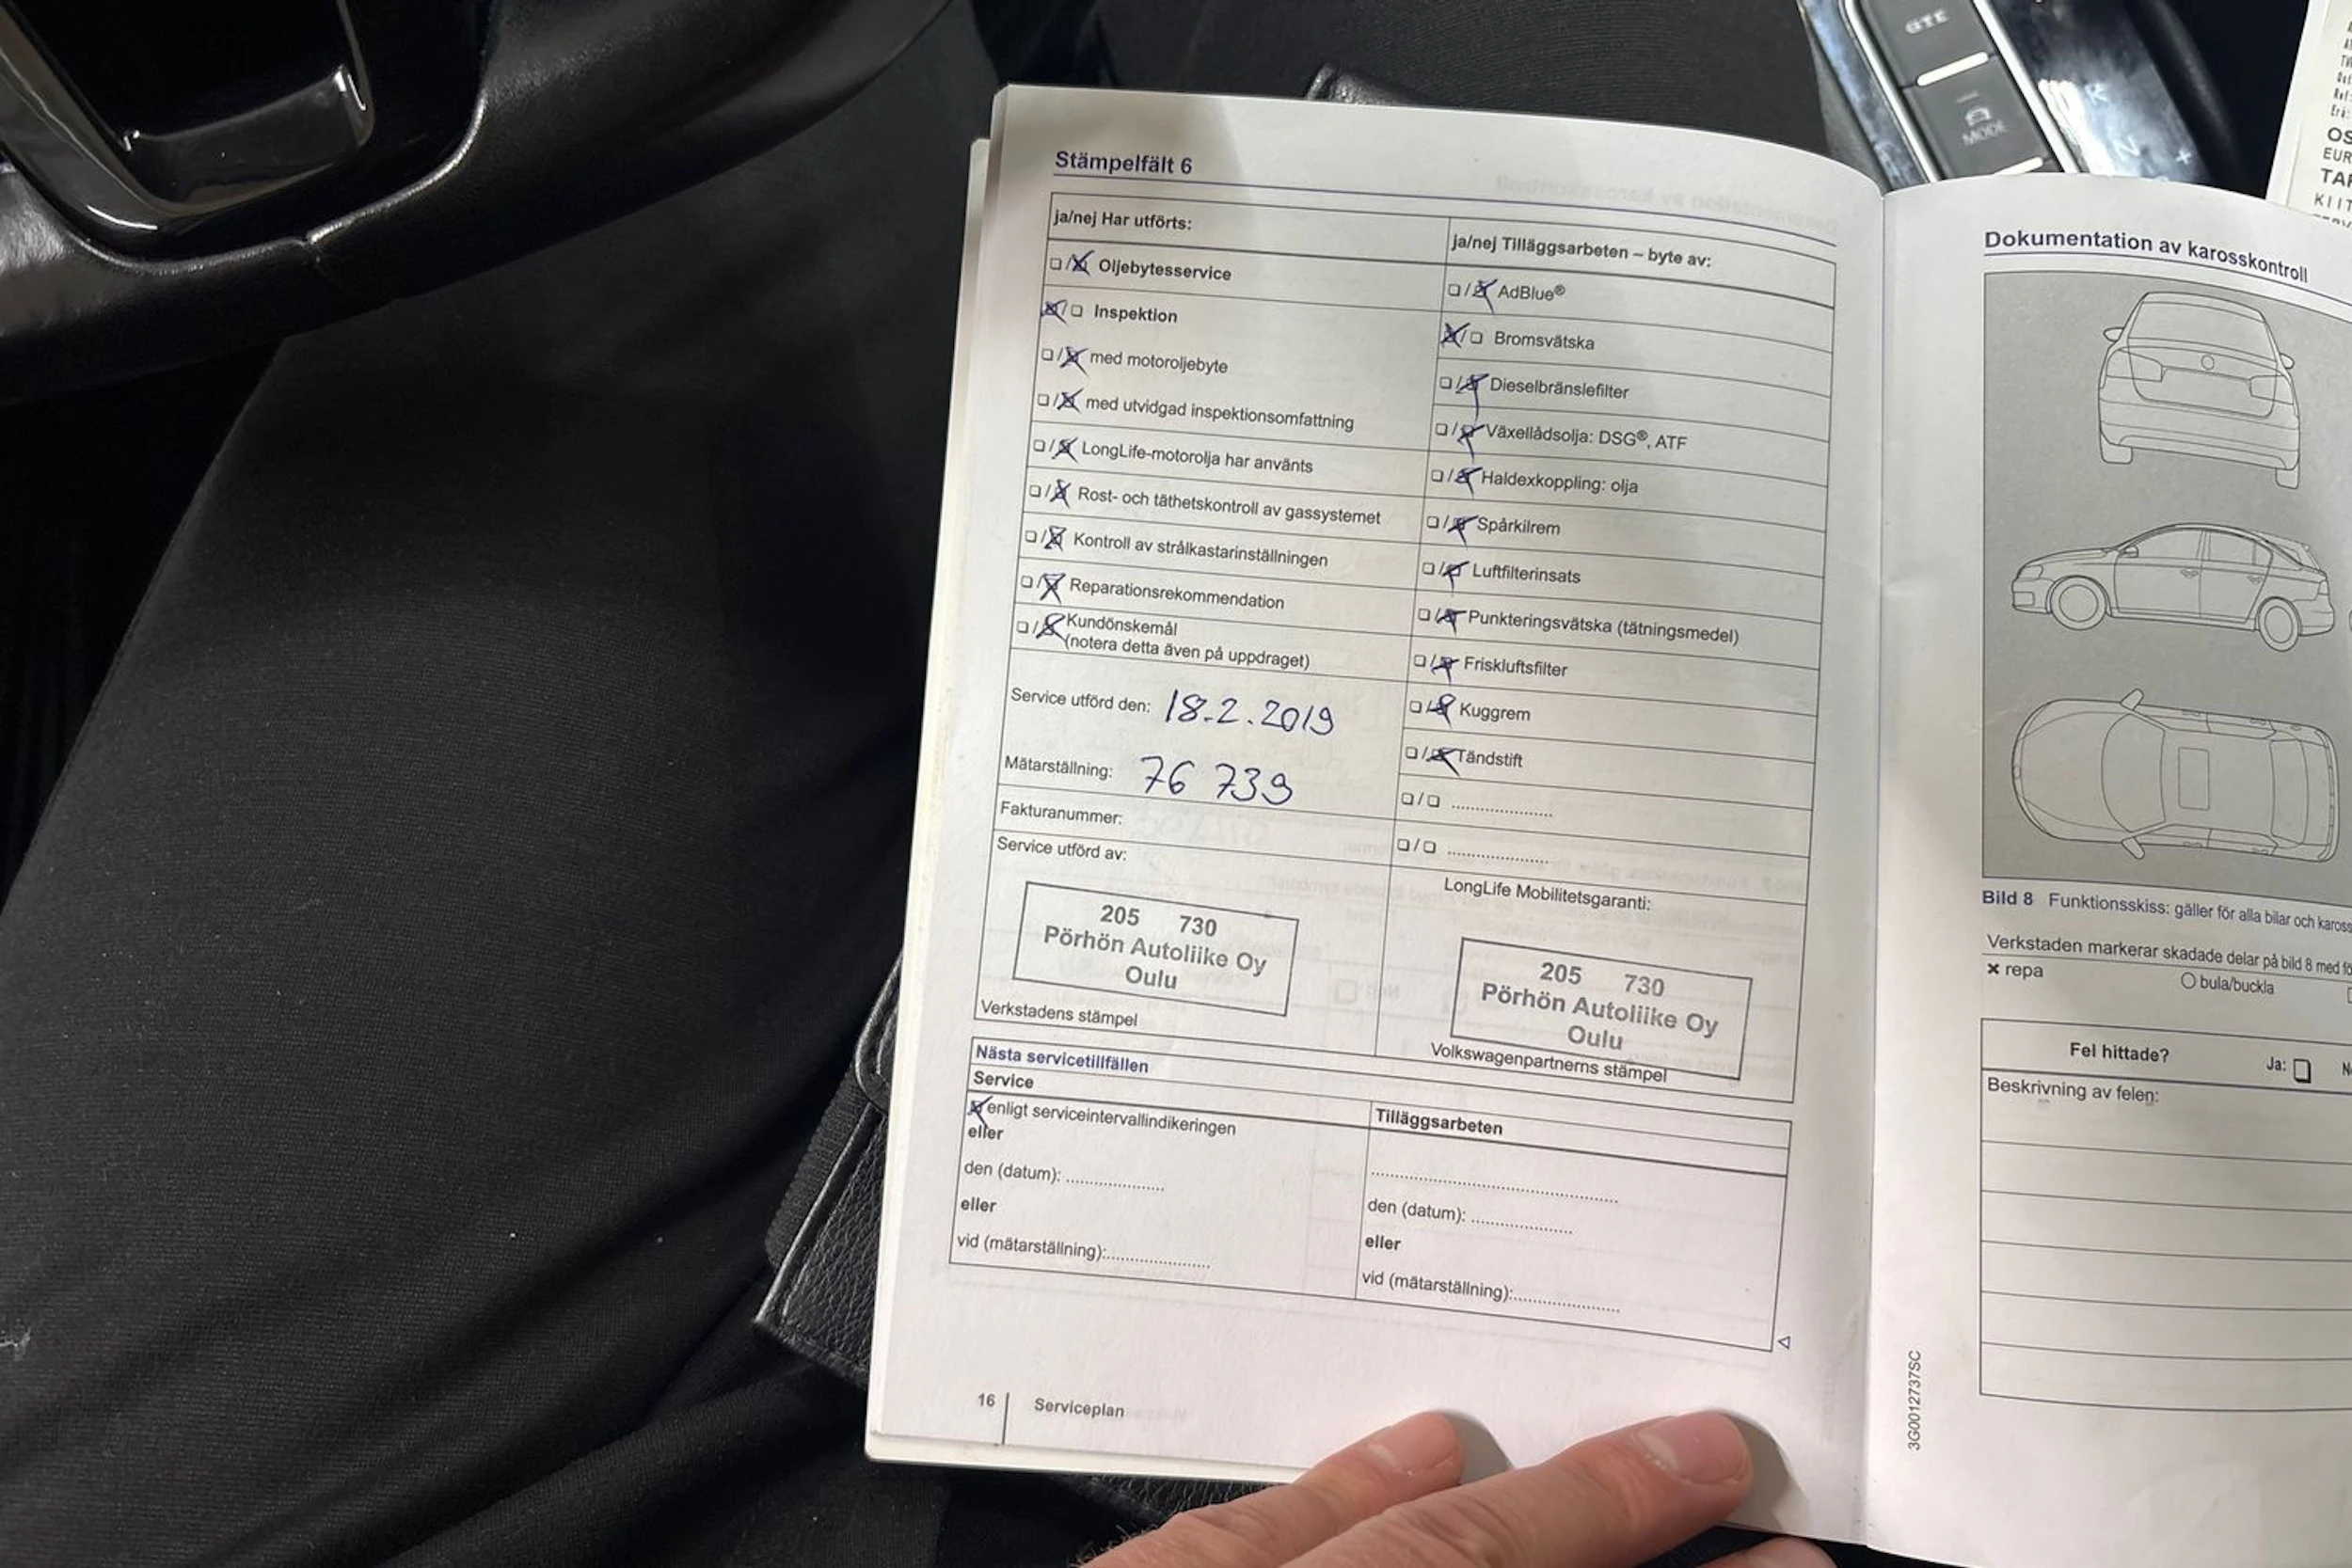 GTE
MODE
R
N
+
OS
EUR
TAI
KIIT
Stämpelfält 6
ja/nej Har utförts:
Oljebytesservice
Inspektion
med motoroljebyte
med utvidgad inspektionsomfattning
LongLife-motorolja har använts
Rost- och täthetskontroll av gassystemet
Kontroll av strålkastarinställningen
Reparationsrekommendation
Kundönskemål
(notera detta även på uppdraget)
Service utförd den: 18.2.2019
Mätarställning: 76 739
Fakturanummer:
Service utförd av:
205 730
Pörhön Autoliike Oy
Oulu
Verkstadens stämpel
ja/nej Tilläggsarbeten – byte av:
AdBlue®
Bromsvätska
Dieselbränslefilter
Växellådsolja: DSG®, ATF
Haldexkoppling: olja
Spårkilrem
Luftfilterinsats
Punkteringsvätska (tätningsmedel)
Friskluftsfilter
Kuggrem
Tändstift
LongLife Mobilitetsgaranti:
205 730
Pörhön Autoliike Oy
Oulu
Volkswagenpartnerns stämpel
Nästa servicetillfällen
Service
enligt serviceintervallindikeringen
eller
den (datum):
eller
vid (mätarställning):
Tilläggsarbeten
den (datum):
eller
vid (mätarställning):
16 Serviceplan
Dokumentation av karosskontroll
Bild 8 Funktionsskiss: gäller för alla bilar och kaross
Verkstaden markerar skadade delar på bild 8 med fö
× repa
bula/buckla
Fel hittade?
Ja:
Beskrivning av felen:
3G0012737SC